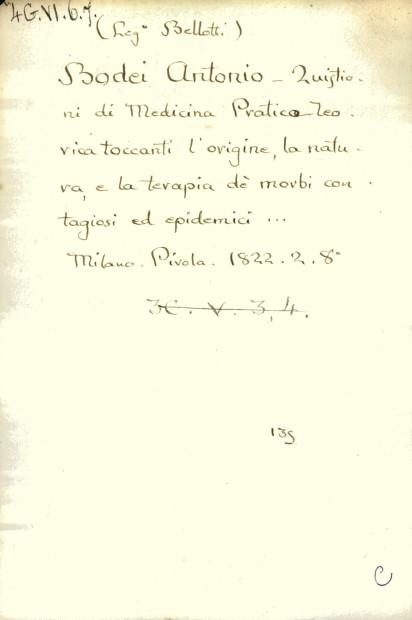 4G.VI.6.7.
(Leg° Bellotti)
Bodei Antonio - Quistio-
ni di Medicina Pratico-Teo-
rica toccanti l'origine, la natu-
ra, e la terapia dè morbi con-
tagiosi ed epidemici ...
Milano. Pirola. 1822. 2. 8°
3C. V. 3,4.
139
C